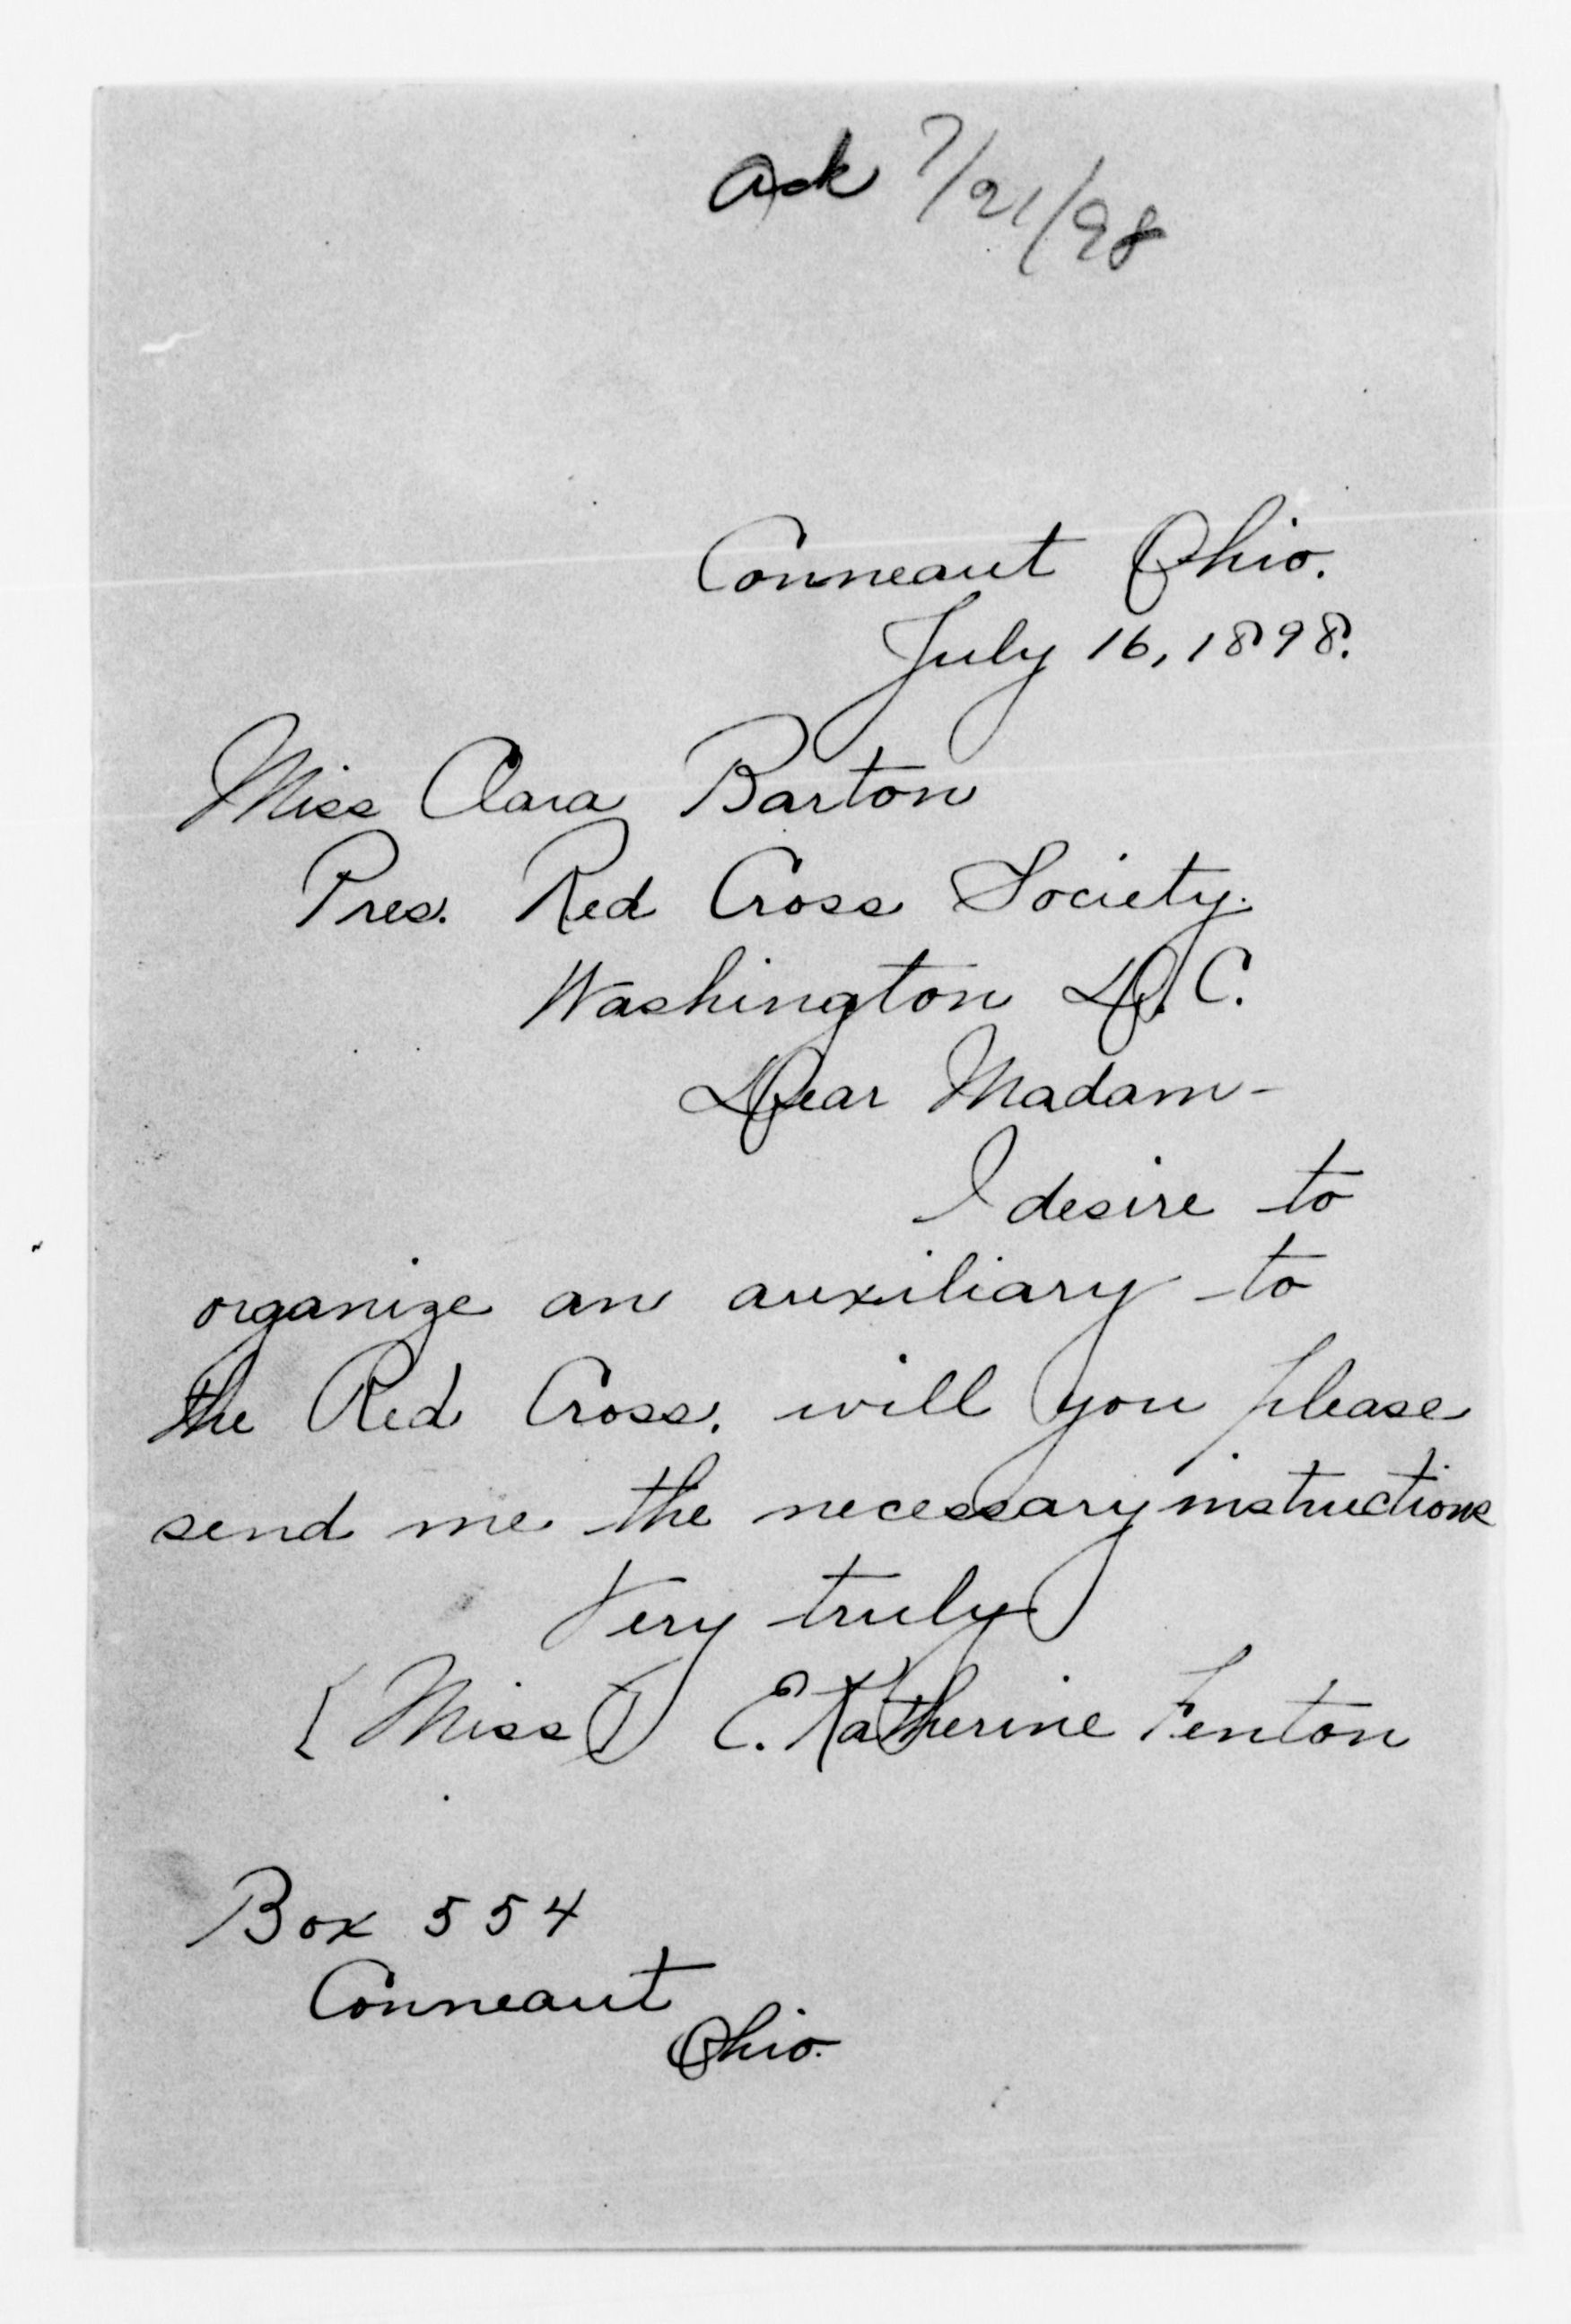 Ack 7/21/98
Conneaut Ohio.
July 16, 1898.
Miss Clara Barton
Pres. Red Cross Society.
Washington D.C.
Dear Madam-
I desire to
organize an auxiliary to
the Red Cross. will you please
send me the necessary instructions
Very truly
[Miss] E. Katherine Fenton
Box 554
Conneaut
Ohio.